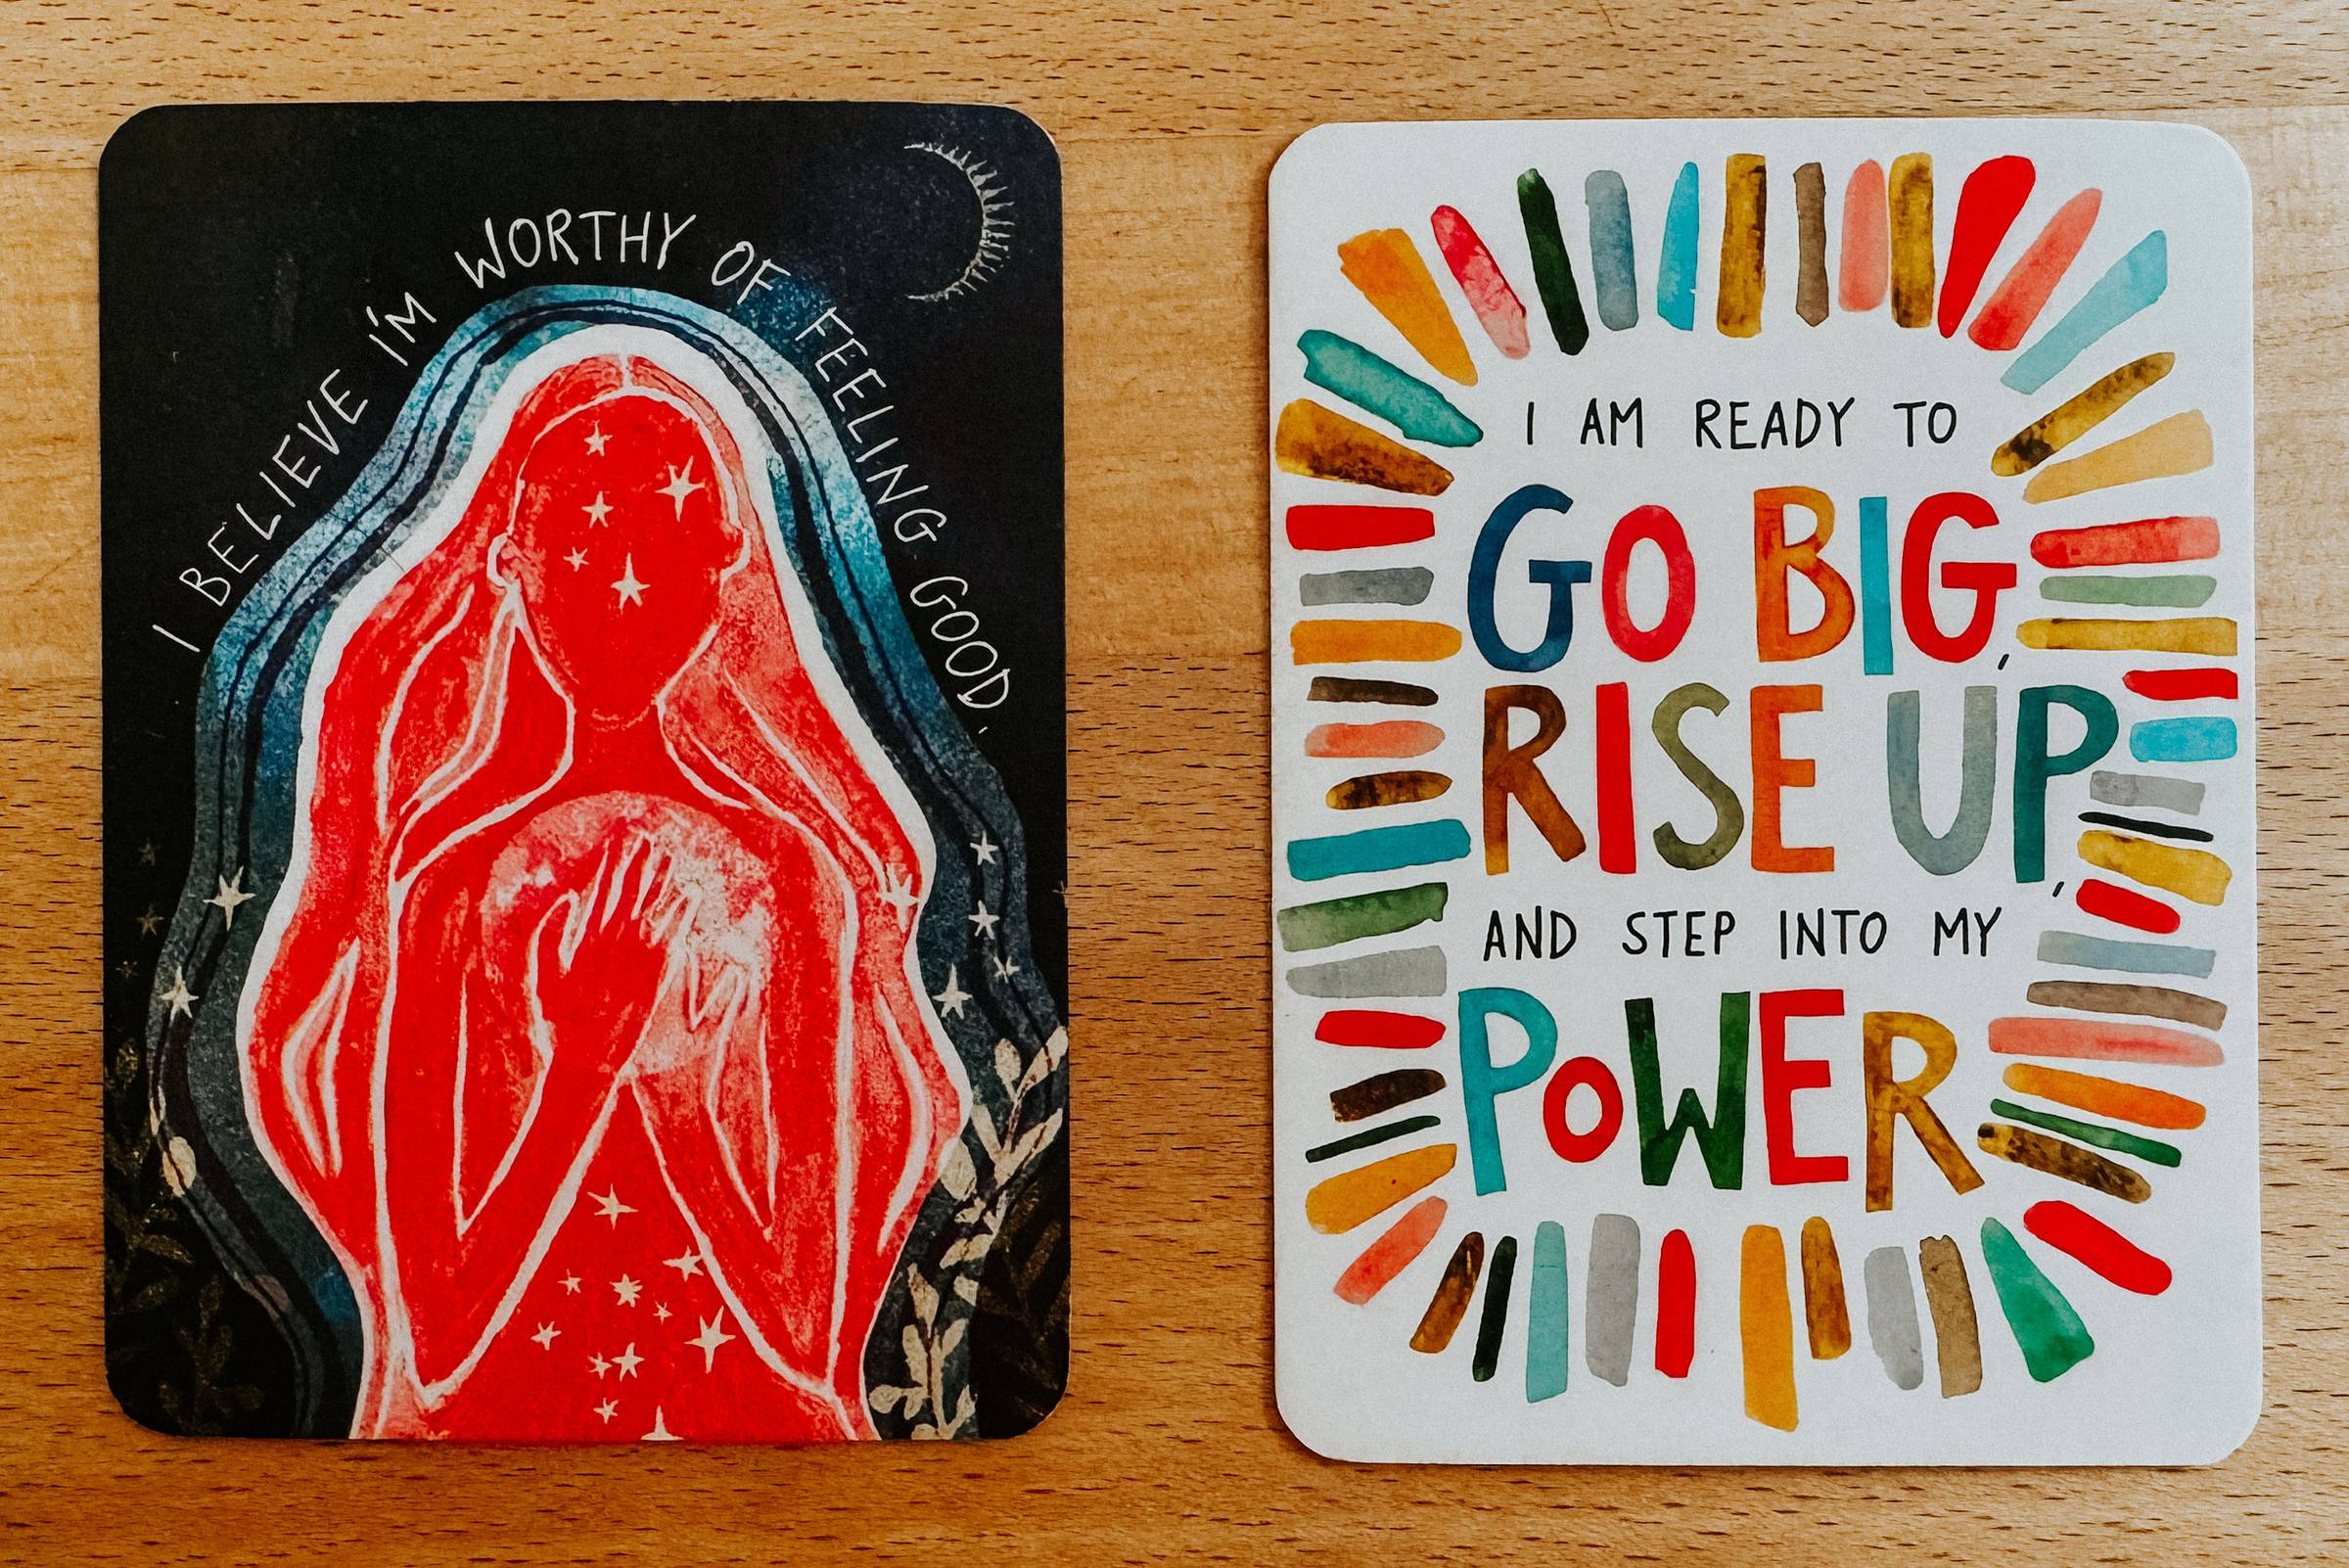 I BELIEVE I'M WORTHY OF FEELING GOOD.
I AM READY TO
GO BIG,
RISE UP,
AND STEP INTO MY
POWER